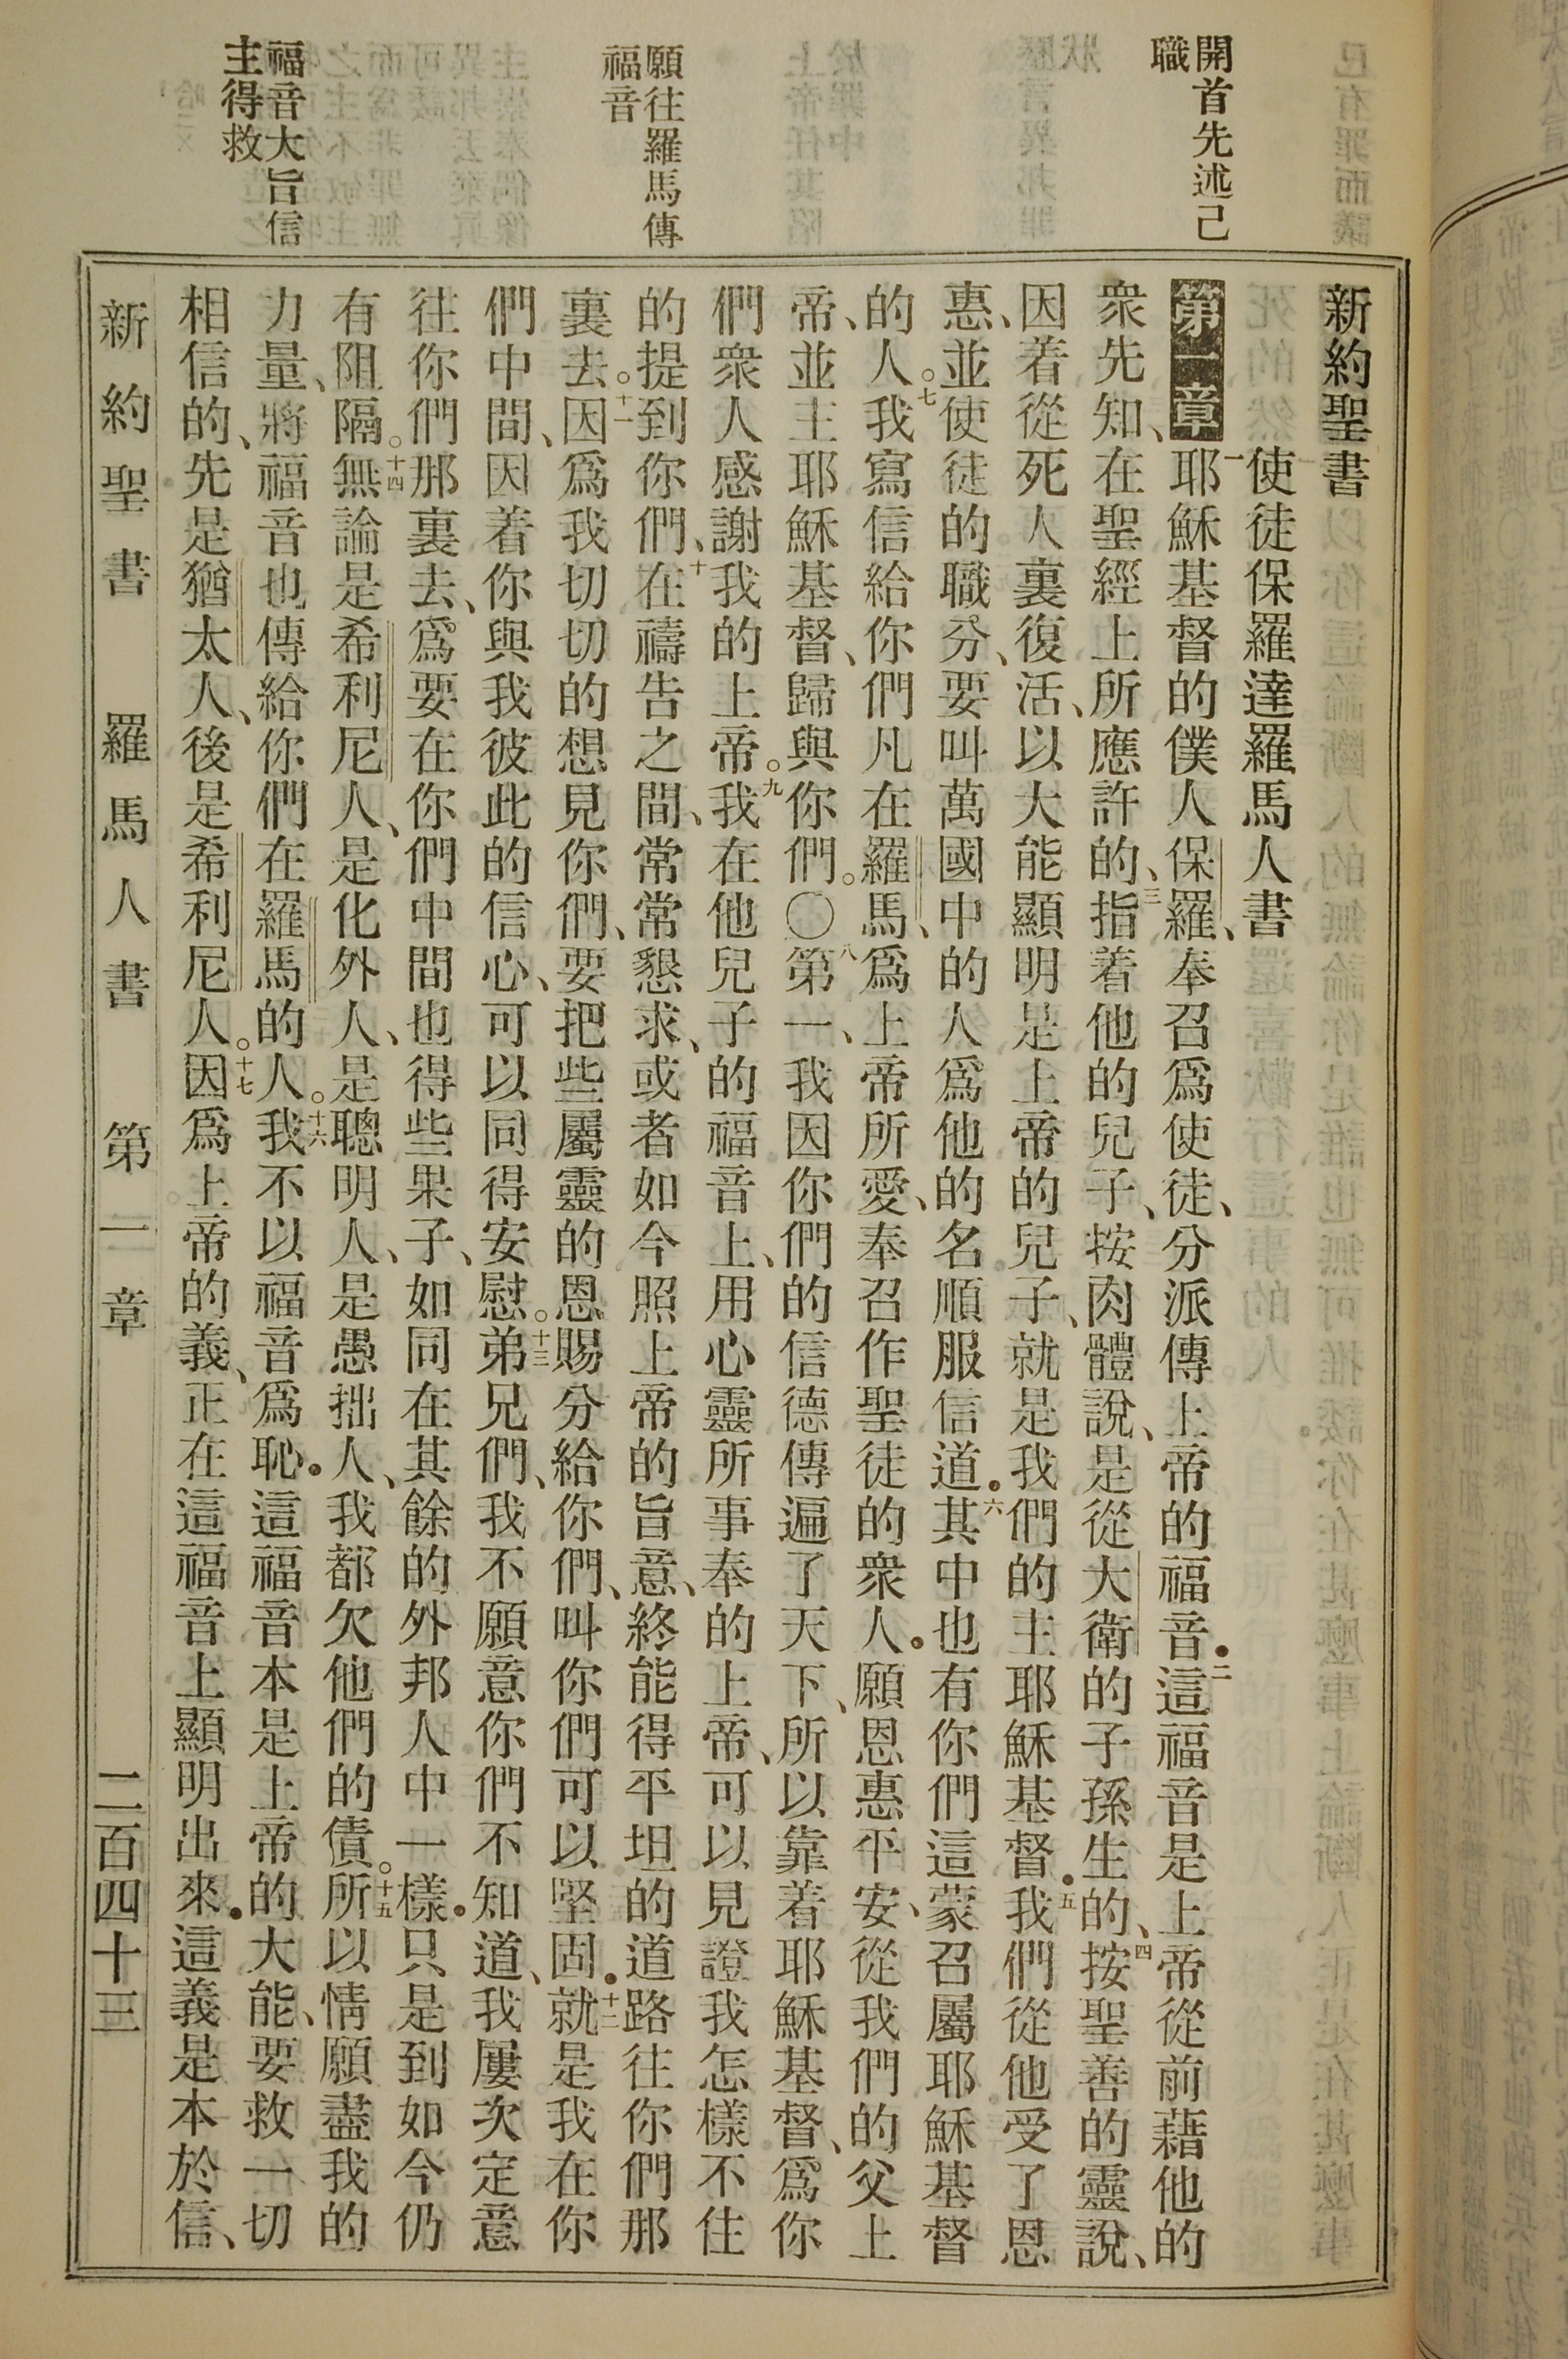 開首先述己
職
願往羅馬傳
福音
福音大旨信
主得救
新約聖書
使徒保羅達羅馬人書
第一章 一耶穌基督的僕人保羅、奉召爲使徒、分派傳上帝的福音●二這福音是上帝從前藉他的
衆先知、在聖經上所應許的、三指着他的兒子、按肉體說、是從大衛的子孫生的、四按聖善的靈說、
因着從死人裏復活、以大能顯明是上帝的兒子、就是我們的主耶穌基督●五我們從他受了恩
惠、並使徒的職分、要叫萬國中的人爲他的名順服信道●六其中也有你們這蒙召屬耶穌基督
的人。七我寫信給你們凡在羅馬、爲上帝所愛、奉召作聖徒的衆人●願恩惠平安、從我們的父上
帝、並主耶穌基督、歸與你們。〇八第一、我因你們的信德傳遍了天下、所以靠着耶穌基督、爲你
們衆人感謝我的上帝。九我在他兒子的福音上、用心靈所事奉的上帝、可以見證我怎樣不住
的提到你們、十在禱告之間、常常懇求、或者如今照上帝的旨意、終能得平坦的道路往你們那
裏去。十一因爲我切切的想見你們、要把些屬靈的恩賜分給你們、叫你們可以堅固●十二就是我在你
們中間、因着你與我彼此的信心、可以同得安慰。十三弟兄們、我不願意你們不知道、我屢次定意
往你們那裏去、爲要在你們中間也得些果子、如同在其餘的外邦人中一樣●只是到如今仍
有阻隔。十四無論是希利尼人、是化外人、是聰明人、是愚拙人、我都欠他們的債。十五所以情願盡我的
力量、將福音也傳給你們在羅馬的人。十六我不以福音爲恥●這福音本是上帝的大能、要救一切
相信的、先是猶太人、後是希利尼人。十七因爲上帝的義、正在這福音上顯明出來●這義是本於信、
新約聖書 羅馬人書 第一章 二百四十三